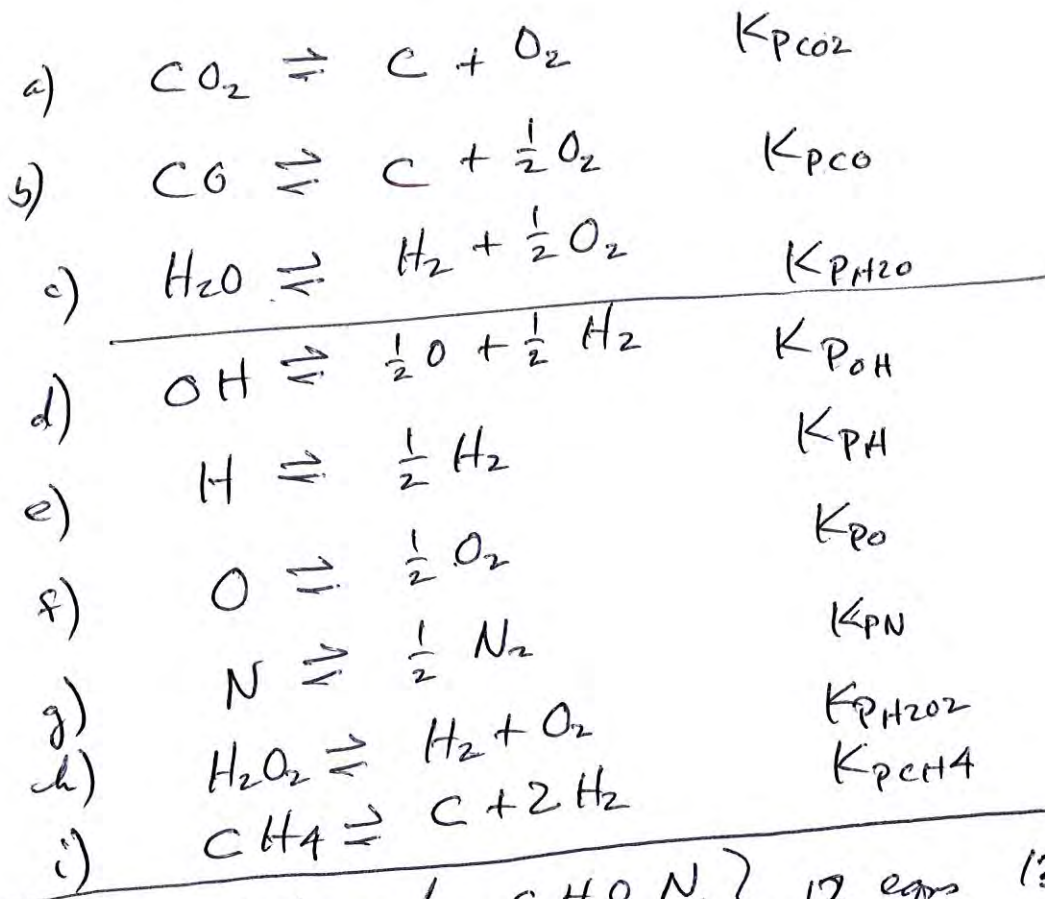 a) CO₂ ⇌ C + O₂ KpCO2
b) CO ⇌ C + ½O₂ KpCO
c) H₂O ⇌ H₂ + ½O₂ KpH2O
d) OH ⇌ ½O + ½H₂ KPOH
e) H ⇌ ½H₂ KPH
f) O ⇌ ½O₂ KPO
g) N ⇌ ½N₂ KPN
h) H₂O₂ ⇌ H₂ + O₂ KPH2O2
i) CH4 ⇌ C + 2H₂ KPCH4